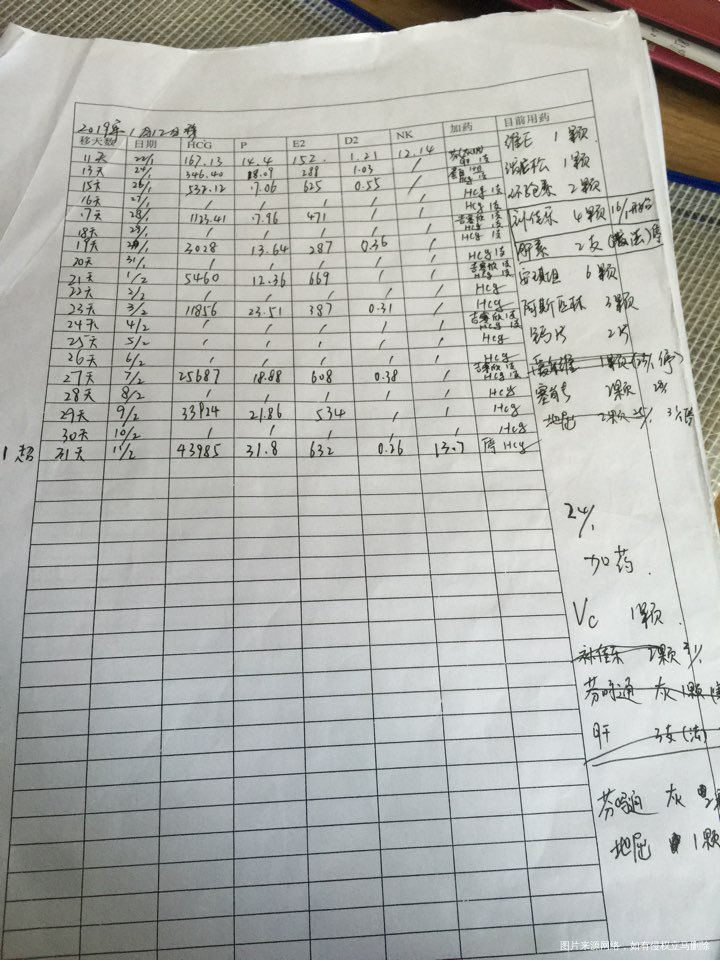 2019年1月12日移
移天数 日期 HCG P E2 D2 NK 加药 目前用药
11天 22/1 167.13 14.4 152. 1.21 12.14
维E 1颗
13天 24/1 346.40 18.09 288 1.03 /
1颗
15天 26/1 532.12 7.06 625 0.55 / HCg 1支
环孢素 2颗
16天 27/1 / / / / / HCg 1支
17天 28/1 1123.41 7.96 471 / / 吉赛欣 1支 HCg 1支
补佳乐 4颗
18天 29/1 / / / / / HCg 1支
19天 3028 13.64 287 0.36 / HCg 1支
肝素 2支
20天 31/1 / / / / /
21天 1/2 5460 12.36 669 / / 吉赛欣 1支 HCg 1支
6颗
22天 2/2 / / / / / HCg
23天 3/2 11856 23.51 387 0.31 / HCg
阿斯匹林 3颗
24天 4/2 / / / / / 吉赛欣 1支 HCg 1支
25天 5/2 / / / / / HCg
钙片 2片
26天 6/2 / / / / / HCg
27天 7/2 25687 18.88 608 0.38 / 吉赛欣 1支 HCg 1支
1颗
28天 8/2 / / / / / HCg
2颗
29天 9/2 33924 21.86 534 / / HCg
地屈 2颗
30天 10/2 / / / / / HCg
1超 31天 11/2 43985 31.8 632 0.26 13.7 停HCg
24/1
加药.
Vc 1颗.
补佳乐 2颗
芬吗通 灰 1颗
肝 3支(法)
芬吗通 灰 2颗
地屈 1颗
图片来源网络，如有侵权立马删除